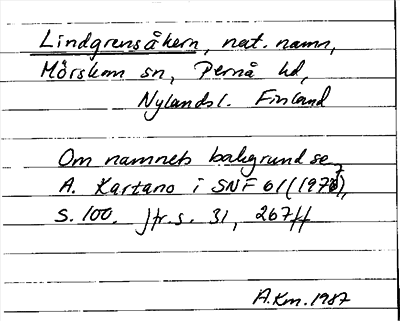 Lindgrensåkern, nat. namn,
Mörskom sn, Pernå hd,
Nylandsl. Finland
Om namnets bakgrund se
A. Kartano i SNF 61 (1973),
s. 100. Jfr. s. 31, 267ff
A.Km. 1987